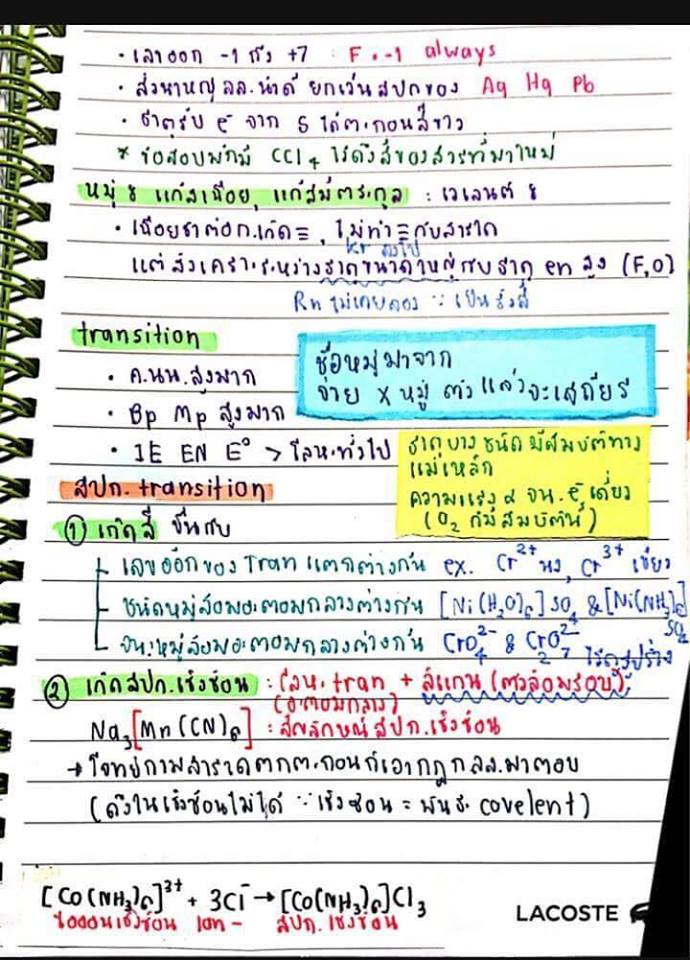 • เลขออก -1 ถึง +7 : F = -1 always
• ส่วนใหญ่ลล.น้ำดี ยกเว้นสปกของ Ag Hg Pb
• ธาตุรับ e⁻ จาก S ได้ต.กอนสีขาว
* ข้อสอบมักมี CCl₄ ไว้ดึงสีของสารที่มาใหม่
หมู่ 8 แก๊สเฉื่อย, แก๊สมีตระกูล : เวเลนต์ 8
• เฉื่อยชาต่อก.เกิด ≡ , ไม่ทำ ≡ กับสารใด
Kr ลงไป
แต่สังเคราะระหว่างธาตุขนาดใหญ่กับธาตุ en สูง (F,O)
Rn ไม่เคยลอง ∵ เป็นรังสี
transition
• ค.นน.สูงมาก
• Bp Mp สูงมาก
• IE EN E° > โลหะทั่วไป
ชื่อหมู่มาจาก
จ่าย x หมู่ ตัว แล้วจะเสถียร
ธาตุบางชนิดมีสมบัติทาง
แม่เหล็ก
ความแรง α จน. e⁻ เดี่ยว
(O₂ ก็มีสมบัตินี้)
สปก. transition
① เกิดสี ขึ้นกับ
เลขออกของ Tran แตกต่างกัน ex. Cr²⁺ Cr³⁺ เขียว
ชนิดหมู่ล้อมอะตอมกลางต่างกัน [Ni(H₂O)₆]SO₄ & [Ni(NH₃)₆]SO₄
จน.หมู่ล้อมอะตอมกลางต่างกัน CrO₄²⁻ & CrO₇²⁻ ₂
② เกิดสปก.เชิงซ้อน : โลหะ tran + ลิแกน (ตัวล้อมรอบ)
(อะตอมกลาง)
Na₃[Mn(CN)₆] : สัญลักษณ์สปก.เชิงซ้อน
→ โจทย์ถามสารใดตกต.กอนก็เอากฎกลล.มาตอบ
(ดึงในเชิงซ้อนไม่ได้ ∵ เชิงซ้อน = พันธะ covelent)
[Co(NH₃)₆]³⁺ + 3Cl⁻ → [Co(NH₃)₆]Cl₃
ไอออนเชิงซ้อน ไอก - สปก.เชิงซ้อน
LACOSTE